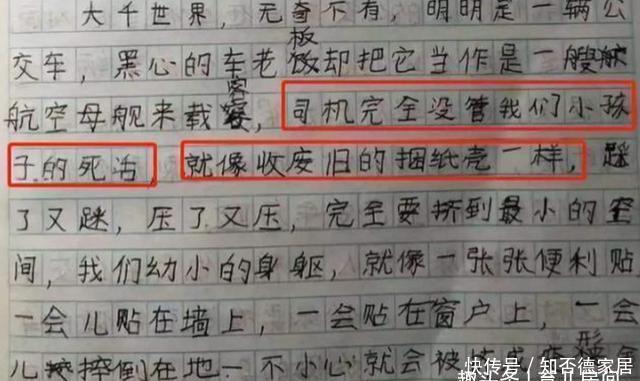 大千世界，无奇不有，明明是一辆公
交车，黑心的车老板却把它当作是一艘
航空母舰来载客，司机完全没管我们小孩
子的死活，就像收废旧的捆纸壳一样，踩
了又踩，压了又压，完全要挤到最小的空
间，我们幼小的身躯，就像一张张便利贴
一会儿贴在墙上，一会贴在窗户上，一会
儿摔倒在地一不小心就会被
快传号/知不德家居